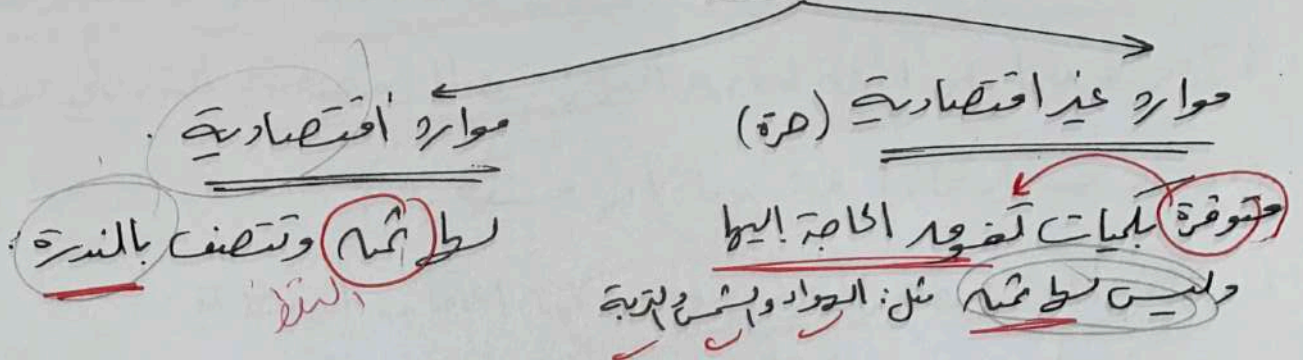 موارد غير اقتصادية (حرة)
متوفرة بكميات تفوق الحاجة إليها
وليس لها ثمن مثل: الهواء والشمس والتربة
موارد اقتصادية
لها ثمن وتتصف بالندرة.
النفط